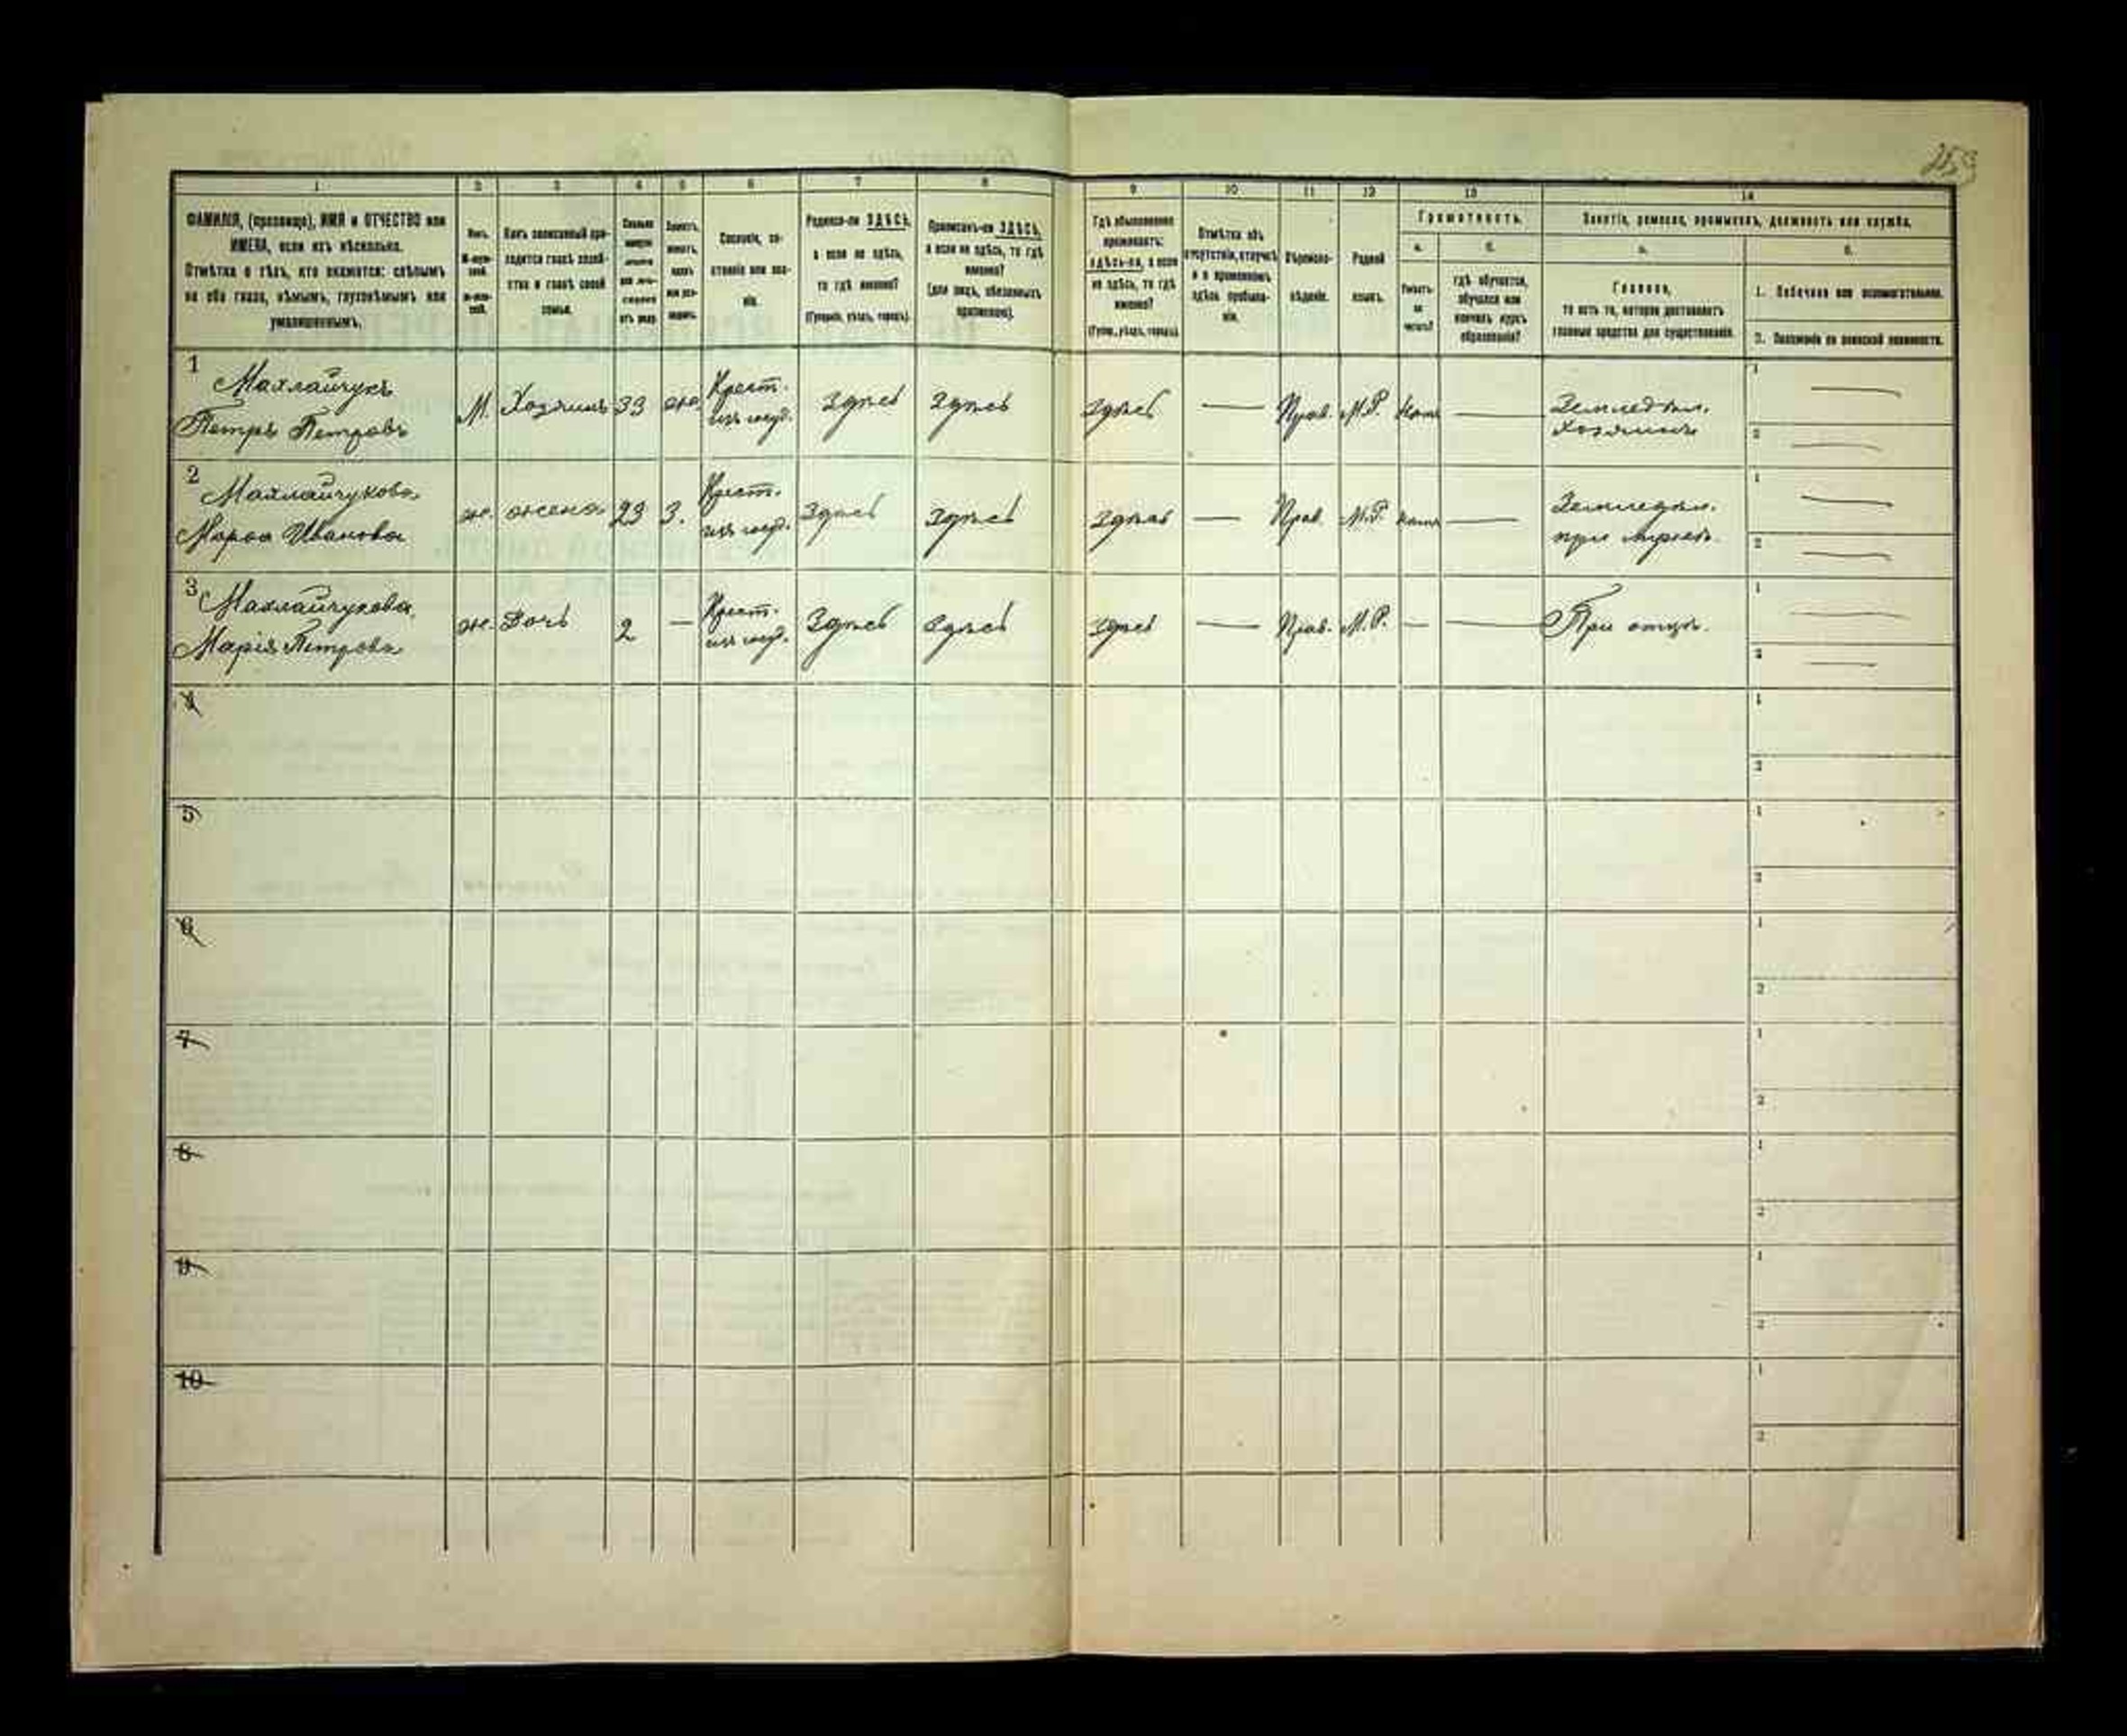 253
1 2 3 4 5 6 7 8 9 10 11 12 13 14
ФАМИЛІЯ, (прозвище), ИМЯ и ОТЧЕСТВО или
ИМЕНА, если ихъ нѣсколько.
Отмѣтка о тѣхъ, кто окажется: слѣпымъ
на оба глаза, нѣмымъ, глухонѣмымъ или
умалишеннымъ.
Полъ.
М-муж-
ской.
Ж-жен-
скій.
Какъ записанный при-
ходится главѣ хозяй-
ства и главѣ своей
семьи.
Сколько
минуло
лѣтъ
или мѣ-
сяцевъ
отъ роду.
Холостъ,
женатъ,
вдовъ
или раз-
веденъ.
Сословіе, со-
стояніе или зва-
ніе.
Родился-ли ЗДѢСЬ,
а если не здѣсь,
то гдѣ именно?
(Губернія, уѣздъ, городъ).
Приписанъ-ли ЗДѢСЬ,
а если не здѣсь, то гдѣ
именно?
(для лицъ, обязанныхъ
припискою).
Гдѣ обыкновенно
проживаетъ:
здѣсь-ли, а если
не здѣсь, то гдѣ
именно?
(Губер., уѣздъ, городъ).
Отмѣтка объ
отсутствіи, отлучкѣ
и о временномъ
здѣсь пребыва-
ніи.
Вѣроиспо-
вѣданіе.
Родной
языкъ.
Грамотность.
а.
Умѣетъ-
ли
читать?
б.
гдѣ обучается,
обучался или
кончилъ курсъ
образованія?
Занятіе, ремесло, промыселъ, должность или служба.
а.
Главное,
то есть то, которое доставляетъ
главныя средства для существованія.
б.
1. Побочное или вспомогательное.
2. Положеніе по воинской повинности.
1 Махлайчукъ
Петръ Петровъ М. Хозяинъ 33 ж. Крест. изъ госуд. Здѣсь Здѣсь Здѣсь — Прав. М.Р. Нѣтъ — Земледѣл. Хозяинъ 1 — 2 —
2 Махлайчукова
Марѳа Иванова ж. жена 23 З. Крест. изъ госуд. Здѣсь Здѣсь Здѣсь — Прав. М.Р. Нѣтъ — Земледѣл. при мужѣ. 1 — 2 —
3 Махлайчукова
Марія Петрова ж. Дочь 2 — Крест. изъ госуд. Здѣсь Здѣсь Здѣсь — Прав. М.Р. — — При отцѣ. 1 — 2 —
4 1
2
5 1
2
6 1
2
7 1
2
8 1
2
9 1
2
10 1
2